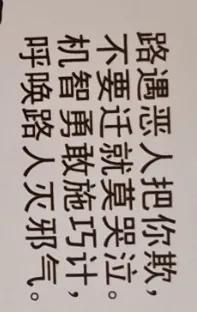 路遇恶人把你欺，
不要迁就莫哭泣。
机智勇敢施巧计，
呼唤路人灭邪气。